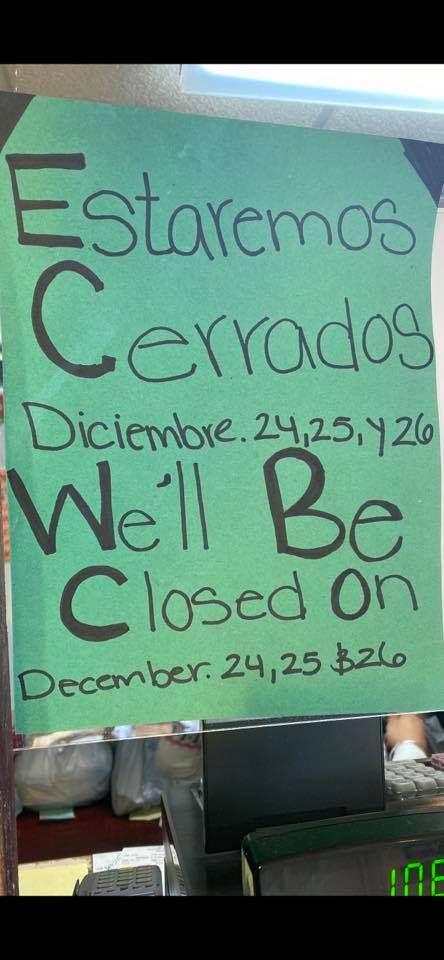 Estaremos
Cerrados
Diciembre. 24,25, y 26
We'll Be
Closed On
December. 24,25 & 26